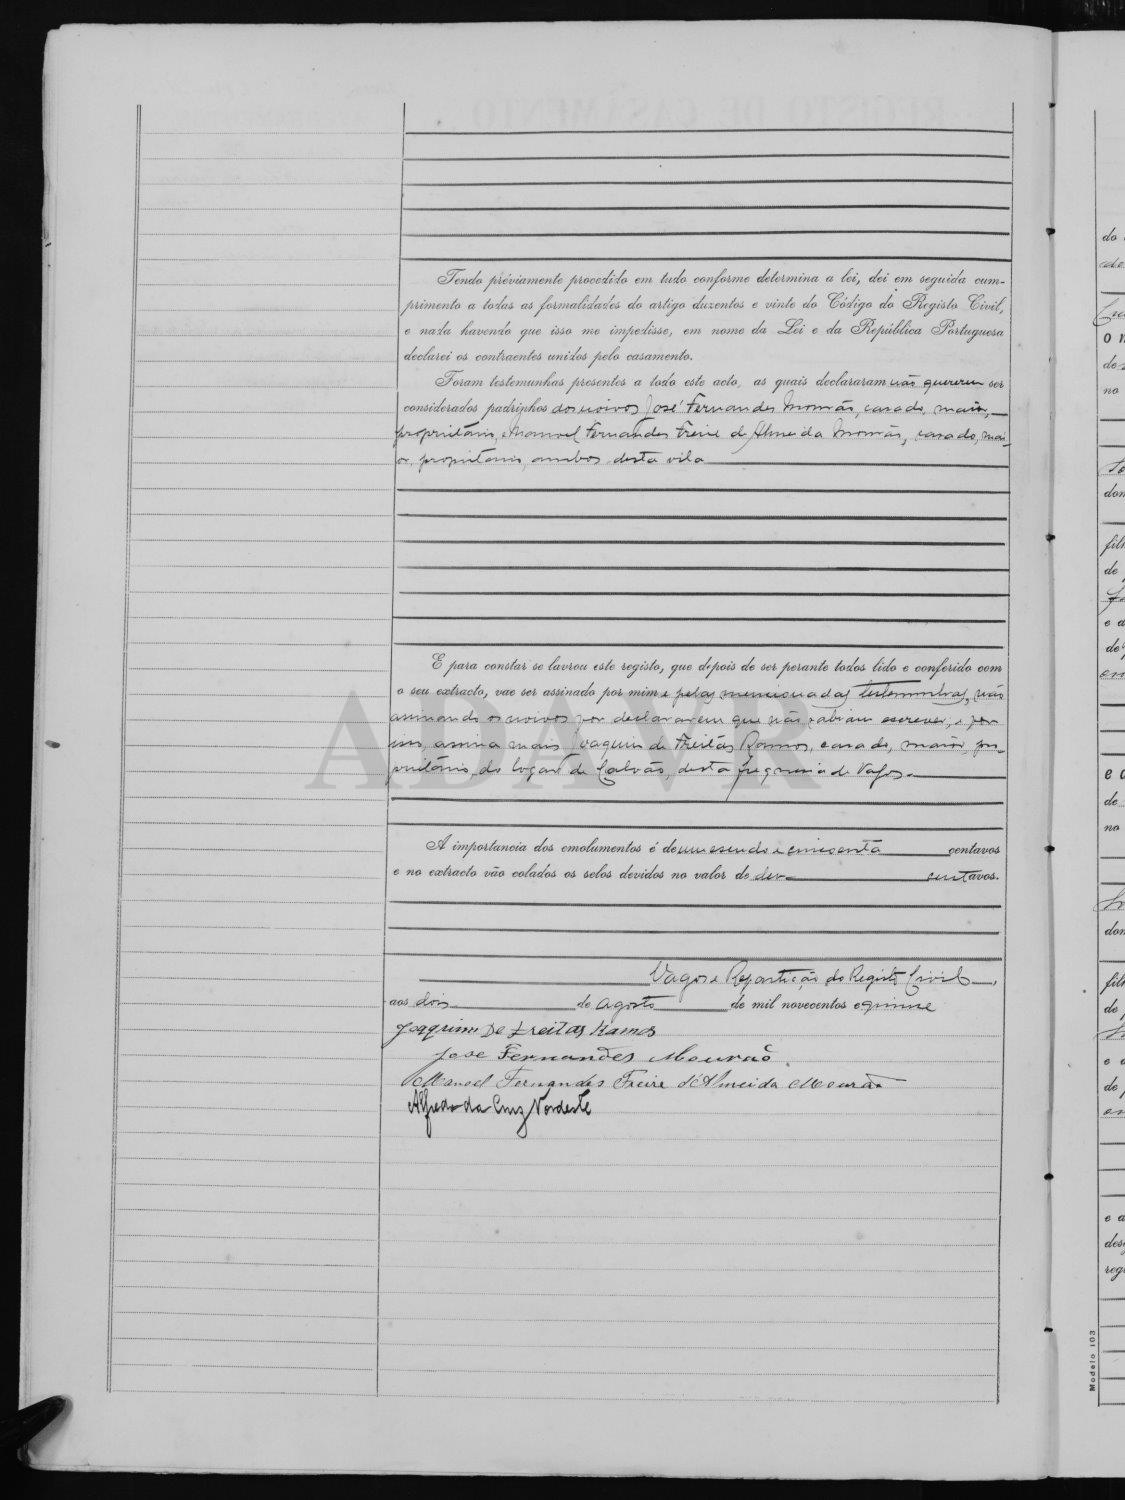 Tendo préviamente procedido em tudo conforme determina a lei, dei em seguida cum-
primento a todas as formalidades do artigo duzentos e vinte do Código do Registo Civil,
e nada havendo que isso me impedisse, em nome da Lei e da República Portuguesa
declarei os contraentes unidos pelo casamento.
Foram testemunhas presentes a todo este acto, as quais declararam não quererem ser
considerados padrinhos dos noivos José Fernandes Mourão, casado, maior,
proprietário, e Manoel Fernandes Freire de Almeida Mourão, casado, mai-
or, proprietario, ambos desta vila
E para constar se lavrou este registo, que depois de ser perante todos lido e conferido com
o seu extracto, vae ser assinado por mim e pelas mencionadas testemunhas, não
assinando os noivos por declararem que não sabiam escrever, e por
isso, assina mais Joaquim de Freitas Ramos, casado, maior, pro-
prietário, do logar de Calvão, desta freguesia de Vagos.
A importancia dos emolumentos é de um escudo e cincoenta centavos
e no extracto vão colados os selos devidos no valor de dez centavos.
Vagos e Repartição do Registo Civil,
aos dois de Agosto de mil novecentos e quinse
Joaquim De Freitas Ramos
Jose Fernandes Mourão
Manoel Fernandes Freire d'Almeida Mourão
Alfredo da Cruz Nordeste
ADAVR
REGISTO DE CASAMENTO
do
Modelo 103